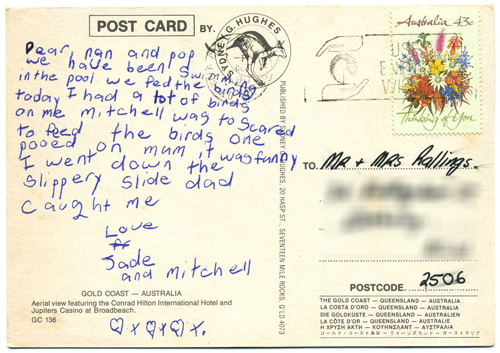 POST CARD BY.
SYDNEY G. HUGHES
Australia 43c
Thinking of You
Dear, nan and pop
we have been Swimming
in the pool we fed the birds
today I had a lot of birds
on me mitchell was to scared
to feed the birds one
pooed on mum it was funny
I went down the
slippery slide dad
caught me
Love
Jade
and Mitchell
GOLD COAST – AUSTRALIA
Aerial view featuring the Conrad Hilton International Hotel and
Jupiters Casino at Broadbeach.
GC 136
PUBLISHED BY SYDNEY G. HUGHES, 20 HASP ST., SEVENTEEN MILE ROCKS, Q'LD 4073
TO Mr + Mrs Rallings.
POSTCODE 2506
THE GOLD COAST – QUEENSLAND – AUSTRALIA
LA COSTA D'ORO – QUEENSLAND – AUSTRALIA
DIE GOLDKÜSTE – QUEENSLAND – AUSTRALIEN
LA CÔTE D'OR – QUEENSLAND – AUSTRALIE
Η ΧΡΥΣΗ ΑΚΤΗ – ΚΟΥΗΝΣΛΑΝΤ – ΑΥΣΤΡΑΛΙΑ
ゴールド・コースト海岸 – クィーンズランド – オーストラリア